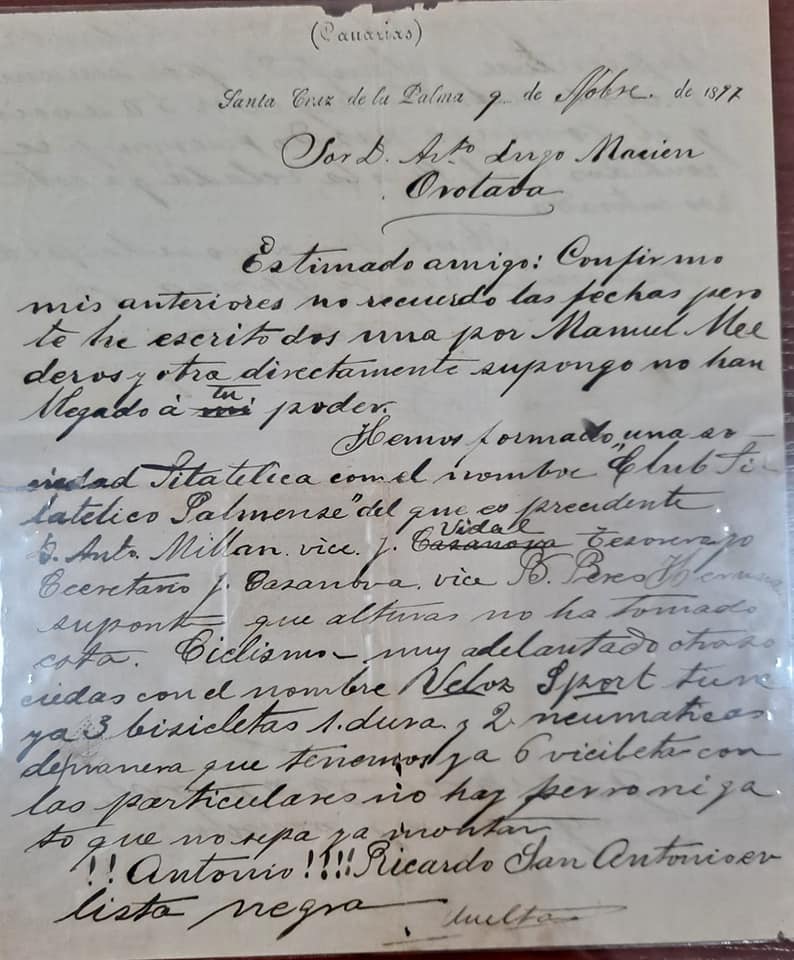 (Canarias)
Santa Cruz de la Palma 9 de Nobre. de 1897
Sor D. Anto Lugo Macien
Orotava
Estimado amigo: Confirmo
mis anteriores no recuerdo las fechas pero
te he escrito dos una por Manuel Me
deros y otra directamente supongo no han
llegado á mi tu poder.
Hemos formado una so-
ciedad Filatelica con el nombre "Club Fi
latelico Palmense" del que es precidente
D. Anto. Millan. vice. J. Casanova Vidal Tesorero yo
Cecretario J. Casanova. vice B. Peres
supont que alturas no ha tomado
esta. Ciclismo - muy adelantado otra so
ciedas con el nombre Veloz Sport tiene
ya 3 bisicletas 1. dura. y 2 neumaticas
demanera que tenemos ya 6 vicibeta con
las particulares no hay perro ni ga
to que no sepa ya montar
!! Antonio !!!! Ricardo San Antonio en
lista negra
Vuelta